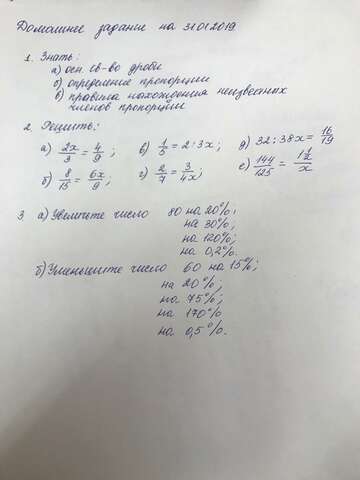 Домашнее задание на 31.01.2019
1. Знать:
а) осн. св-во дроби
б) определение пропорции
в) правила нахождения неизвестных
членов пропорции
2. Решить:
а) 2x/3 = 4/9; в) 1/5 = 2:3x; д) 32:38x = 16/19
б) 8/15 = 6x/9; г) 2/7 = 3/4x; е) 144/125 =
3. а) Увеличьте число 80 на 20%;
на 30%;
на 120%;
на 0,2%.
б) Уменьшите число 60 на 15%;
на 20%;
на 75%;
на 170%
на 0,5%.